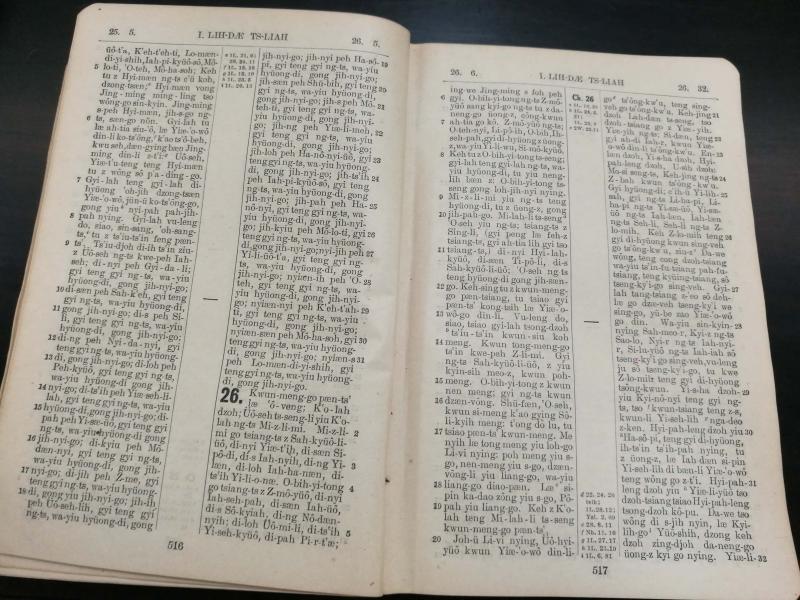 25. 5.
I. LIH-DÆ TS-LIAH
26. 5.
üô-t'a, K'eh-t'eh-ti, Lo-mæn-
di-yi-shih, Iah-pi-kyüô-sô, Mô-
5 lo-di, 'O-teh, Mô-ha-soh; Keh
tu z Hyi-mæn ng-ts c'ü koh,
dzong-tsæn; Hyi-mæn vong
Jing-ming ming-ling tso
wông-go sin-kyin. Jing-ming
s-peh Hyi-mæn, jih-s-go ng-
6 ts, sæn-go nön. Gyi-lah tu
læ ah-tia siu-'ô, læ Yiæ-'o-wô
din-li ko-ts'ông, 'k'ao ts'ô-beh,
kwu seh, dæn-gying bæn Jing-
ming din-li z-t'i: Uô-seh,
Yiæ-tu-teng teng Hyi-mæn
tu z wông sô p'a-ding-go.
7 Gyi-lah teng gyi-lah di-
hyüong 'oh-jih dzong-tsæn
Yiæ-'o-wô, jün-ü ko-ts'ông-go,
gyin yiu nyi-pah pah-jih-
8 pah nying. Gyi-lah vu-leng
do, siao, sin-sang, 'oh-sang-
ts, tu z ts'iu-ts'in feng pæn-
9 ts'. Ts'iu-djoh di-ih ts'in ziu-
z Uô-seh ng-ts kwe-peh Iah-
seh; di-nyi peh Gyi-da-li;
gyi teng gyi ng-ts, wa-yiu
hyüong-di, gong jih-nyi-go;
10 di-sæn peh Sah-k'eh, gyi teng
gyi ng-ts, wa-yiu hyüong-di,
11 gong jih-nyi-go; di-s peh Si-
li, gyi teng gyi ng-ts, wa-yiu
hyüong-di, gong jih-nyi-go;
12 di-ng peh Nyi-da-nyi, gyi
teng gyi ng-ts, wa-yiu hyüong-
13 di, gong jih-nyi-go; di-loh peh
Peh-kyüô, gyi teng gyi ng-ts,
wa-yiu hyüong-di, gong jih-
14 nyi-go; di-ts'ih peh Yiæ-seh-li-
lah, gyi teng gyi ng-ts, wa-yiu
15 hyüong-di, gong jih-nyi-go; di-
pah peh Yi-sæ-üô, gyi teng gyi
ng-ts, wa-yiu hyüong-di gong
16 jih-nyi-go; di-kyiu peh Mô-
dæn-nyi, gyi teng gyi ng-ts,
wa-yiu hyüong-di, gong jih-
17 nyi-go; di-jih peh Z-me, gyi
teng gyi ng-ts, wa-yiu hyüong-
18 di, gong jih-nyi-go; jih-ih
peh Uô-seh-lih, gyi teng gyi
ng-ts, wa-yiu hyüong-di, gong
jih-nyi-go; jih-nyi peh Ha-sô- 19
pi, gyi teng gyi ng-ts, wa-yiu
hyüong-di, gong jih-nyi-go;
jih-sæn peh Shü-bih, gyi teng 20
gyi ng-ts, wa-yiu hyüong-di,
gong jih-nyi-go; jih-s peh Mô- 21
teh-ti, gyi teng gyi ng-ts, wa-
yiu hyüong-di, gong jih-nyi-
go; jih-ng peh Yiæ-li-meh, 22
gyi teng gyi ng-ts, wa-yiu
hyüong-di, gong jih-nyi-go;
jih-loh peh Ha-nô-nyi-üô, gyi 23
teng gyi ng-ts, wa-yiu hyüong-
di, gong jih-nyi-go; jih-ts'ih 24
peh Iah-pi-kyüô-sô, gyi teng
gyi ng-ts, wa-yiu hyüong-di,
gong jih-nyi-go; jih-pah peh 25
Ha-nô-nyi, gyi teng gyi ng-ts,
wa-yiu hyüong-di, gong jih-nyi-
go; jih-kyiu peh Mô-lo-ti, gyi 26
teng gyi ng-ts, wa-yiu hyüong-
di, gong jih-nyi-go; nyi-jih peh 27
Yi-li-üô-t'a, gyi teng gyi ng-
ts, wa-yiu hyüong-di, gong
jih-nyi-go; nyiæn-ih peh 'O- 28
di, gyi teng gyi ng-ts, wa-yiu
hyüong-di, gong jih-nyi-
go; nyiæn-nyi peh K'eh-t'ah- 29
li, gyi teng gyi ng-ts, wa-yiu
hyüong-di, gong jih-nyi-go;
nyiæn-sæn peh Mô-ha-soh, gyi 30
teng gyi ng-ts, wa-yiu hyüong-
di, gong jih-nyi-go; nyiæn-s 31
peh Lo-mæn-di-yi-shih, gyi
teng gyi ng-ts, wa-yiu hyüong-
di, gong jih-nyi-go.
26. Kwun-meng-go pæn-ts'
læ 'ô-veng; K'o-lah
dzoh; Uô-seh ts-seng li yia K'o-
lah ng-ts Mi-z-li-mi. Mi-z-li- 2
mi go tsiang-ts z Sah-kyüô-li-
üô, di-nyi Yiæ-t'ih, di-sæn Si-
pô-di, di-s Iah-nyih, di-ng Yi- 3
læn, di-loh Iah-ha-næn, di-
ts'ih Yi-li-o-næ. O-bih-yi-tong 4
go tsiang-ts z Z-mô-yüô, di-nyi
Iah-seh-pah, di-sæn Iah-üô,
di-s Sô-kyiah, di-ng Nô-dæn-
nyih; di-loh Üô-mi-li, di-ts'ih 5
Yi-seh-kyüô, di-pah Pi-r-t'æ;
516
26. 6.
I. LIH-DÆ TS-LIAH
26. 32.
ing-we Jing-ming s foh peh
6 gyi. O-bih-yi-tong ng-ts Z-mô-
yüô sang kyi-go ng-ts tu z da-
neng-go üong-z, eông-kwun
7 ah-tia-go kô. Z-mô-yüô ng-ts;
O-teh-nyi, Li-pô-ih, O-bih, Ih-
seh-pah, gyi di-hyüong z üong-
z, wa-yiu Yi-li-wu, Si-mô-kyüô,
8 Keh tu z O-bih-yi-tong ts-seng;
gyi-lah teng gyi-lah ng-ts, wa-
yiu hyüong-di, tu yiu neng-
lih læn z; O-bih-yi-tong ts-
seng gong loh-jih-nyi nying.
9 Mi-z-li-mi yiu ng-ts teng
hyüong-di, tu z üong-z, gong
10 jih-pah-go. Mi-lah-li ts-seng
'O-seh yiu ng-ts; tsiang-ts z
Sing-li, (gyi peng læ feh-z
tsiang-ts, gyi ah-tia lih gyi tso
11 tsiang-ts,) di-nyi Hyi-lah-
kyüô, di-sæn Ti-pô-li, di-s
Sah-kyüô-li-üô; 'O-seh ng-ts
teng hyüong-di gong jih-sæn-
12 go. Keh-sing tu z kwun-meng-
go pæn-tsiang, tu tsiao gyi
pæn-ts' kong-tsih læ Yiæ-'o-
13 wô-go din-li. Vu-leng do,
siao, tsiao gyi-lah tsong-dzoh
ts'iu-ts'in kwun-siu koh
14 meng. Kwun tong-meng-go
ts'in kwe-peh Z-li-mi. Gyi
ng-ts Sah-kyüô-li-üô, z yiu
kyin-sih meo-z, kwun poh-
15 meng. O-bih-yi-tong z kwun
nen meng; gyi ng-ts z kwun
16 dzæn-vông. Shü-fæn, 'O-seh,
kwun si-meng k'ao gying Sô-
li-kyih meng; t'ong dô lu, tu
17 tsiao pæn-ts' kwun-meng. Me
nyih læ tong meng yiu loh-go
Li-vi nying; poh meng yiu s-
go, nen-meng yiu s-go, dzæn-
vông-li yiu liang-go, wa-yiu
18 liang-go diao-pæn. Læ si-
pin ka-dao zông yiu s-go, Pô-
19 pah yiu liang-go. Keh z K'o-
lah teng Mi-lah-li ts-seng
kwun-meng-go pæn-ts'.
20 Joh-ü Li-vi nying, Uô-hyi-
yüô kwun Yiæ-'o-wô din-li-
Ch. 26
go ts'ông-kw'u, teng sing-
veh-go ts'ông-kw'u. Keh-jing 21
dzoh Lah-dæn ts-seng, tso
dzoh-tsiang-go z Yiæ-yih.
Yiæ-yih ng-ts; Si-dæn, teng 22
gyi ah-di Iah-r, kwun Yiæ-
'o-wô din-li ts'ông-kw'u. En- 23
læn dzoh, Yi-sha dzoh, Hyi-
peh-leng dzoh, U-sih dzoh:
Mo-si seng-ts, Keh-jing ng-ts 24
Z-bah kwun ts'ông-kw'u.
Gyi hyüong-di; z 'ih-ü Yi-lih-
sah, gyi ng-ts Li-ha-pi, Li-
ha-pi ng-ts Yi-sæ-üô, Yi-sæ-
üô ng-ts Iah-læn, Iah-læn
ng-ts Seh-li, Seh-li ng-ts Z-
lo-mih. Keh Z-lo-mih teng 26
gyi di-hyüong kwun sing-veh-
go ts'ông-kw'u, ziu-z Da-we
wông, teng cong dzoh-tsiang
wa-yiu ts'in-fu tsiang pah-fu-
tsiang, teng kyüing-tsiang, sô
tseng-ky'i-go sing-veh. Gyi- 27
lah tang-tsiang z-eo sô deh-
læ go dzæ-veh tseng-ky'i we
sing-go, yü-be zao Yiæ-'o-wô
go din. Wa-yiu sin-kyin- 28
nying Sah-meo-r, Kyi-z ng-ts
Sao-lo, Nyi-r ng-ts Iah-nyi-
r, Si-lu-yüô ng-ts Iah-iah sô
tseng-ky'i go sing-veh, vu-leng
jü sô tseng-ky'i-go, tu kwe
Z-lo-mih teng gyi di-hyüong
kwun-go. Yi-sha dzoh 29
yiu Kyi-nô-nyi teng gyi ng-
ts, tso kwun-tsiang teng z-s,
kwun Yi-seh-lih nga-deo
z-ken. Hyi-pah-leng dzoh yiu 30
Ha-sô-pi, teng gyi di-hyüong,
ih-ts'in ts'ih-pah nying, tu
z üong-z, læ Iah-dæn si-pin
Yi-seh-lih di bæn-li Yiæ-'o-wô
teng wông go z-t'i. Hyi-pah- 31
leng dzoh yiu Yiæ-li-yüô tso
dzoh-tsiang tsiao Hyi-pah-leng
tsong-dzoh kô-pu. Da-we tso
wông di s-jih nyin, læ Kyi-
lih-go Yüô-shih, dzong keh
dzoh zing-djoh da-neng-go
üong-z kyi go nying. Yiæ-li- 32
517